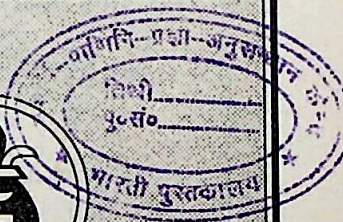 पाणिनि--प्रज्ञा--अनुसन्धान
तिथी
पु०सं०
भारती पुस्तकालय